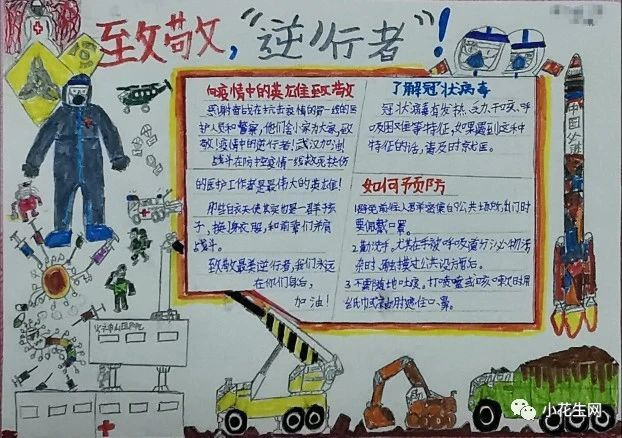 致敬,“逆行者”!
向疫情中的英雄佳致敬
感谢奋战在抗击疫情的第一线的医
护人员和警察,他们舍小家为大家,致
敬!疫情中的逆行者!武汉加油!
战斗在防控疫情一线救死扶伤
的医护工作者是最伟大的英雄!
那些白衣天使其实也是一群孩
子,换身衣服,和前辈们并肩
战斗。
致敬最美逆行者,我们永远
在你们身后,
加油!
了解冠状病毒
冠状病毒有发热、乏力、干咳、呼
吸困难等特征,如果遇到这种
特征的话,请及时就医。
如何预防
1.避免前往人多密集的公共场所,出门时
要佩戴口罩。
2.勤洗手,尤其在手被呼吸道分泌物污
染时、触摸过公共设施后。
3.不要随地吐痰。打喷嚏或咳嗽时用
纸巾或衣袖肘遮住口鼻。
中国火箭
火神山医院
小花生网